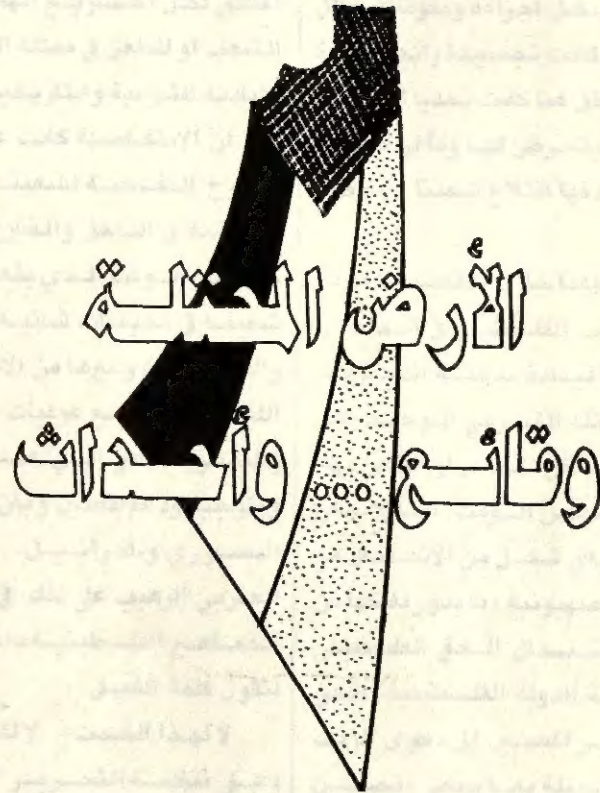 الأرض المحتلة
وقائع ... وأحداث